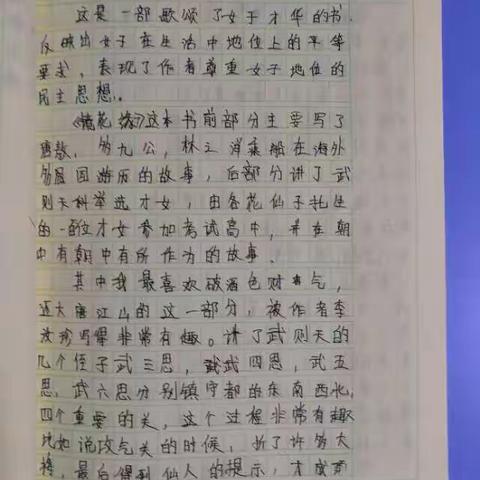 这是一部歌颂了女子才华的书,
反映出女子在生活中地位上的平等
要求,表现了作者尊重女子地位的
民主思想。
《镜花缘》这本书前部分主要写了
唐敖、多九公,林之洋乘船在海外
各国游历的故事,后部分讲了武
则天科举选才女,由各花仙子托生
的一百位才女参加考试高中,并在朝
中有朝中有所作为的故事。
其中我最喜欢破酒色财气,
还大唐江山的这一部分,被作者李
汝珍写得非常有趣。讲了武则天的
几个侄子武三思,武四思,武五
思,武六思分别镇守都的东南西北,
四个重要的关,这个过程非常有趣
比如说攻气关的时候,折了许多大
将,最后得到仙人的提示,才